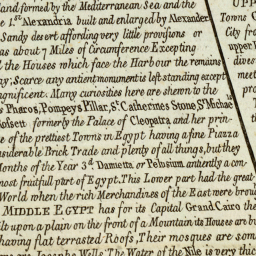 land formed by the Mediterranean Sea and the
1st Alexandria built and enlarged by Alexander
Sandy desert affording very little provisions or
as about 7 Miles of Circumference Excepting
the Houses which face the Harbour the remains
ny; Scarce any antient monument is left standing except
magnificent. Many curiosities here are shewn to the
s Pharos, Pompeys Pillar, St. Catherines Stone, St. Michaels
Rossett formerly the Palace of Cleopatra, and her prin-
e of the prettiest Towns in Egypt having a fine Piazza
nsiderable Brick Trade and plenty of all things, but they
Months of the Year 3d. Damietta or Pelusium antiently a con-
most fruitfull part of Egypt. This Lower part had the great-
World when the rich Merchandizes of the East were brou
MIDDLE EGYPT has for its Capital Grand Cairo the
ilt upon a plain on the front of a Mountain its Houses are bu
having flat terrasted Roofs, Their mosques are som
Josephs Wells. The Water of the Nile is very thic
UPP
Towns C
City fro
upper
dives
meet
pro